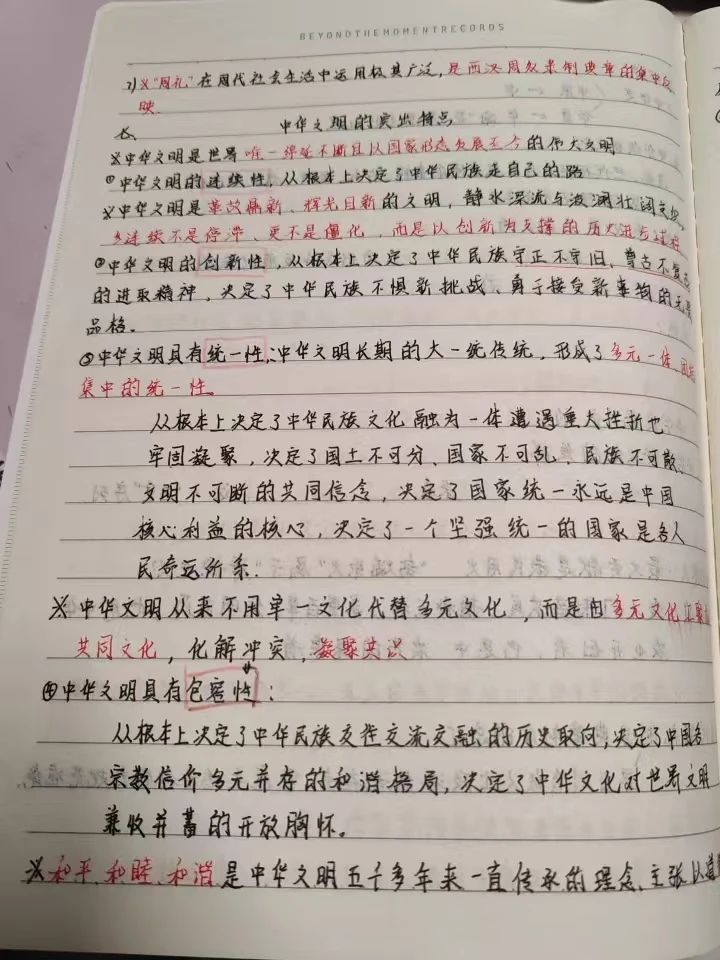 BEYONDTHEMOMENTRECORDS
7)※"周礼"在周代社会生活中运用极其广泛,是西汉周公条例典章的集中反
映.
七、 中华文明的突出特点
※中华文明是世界唯一绵延不断且以国家形态发展至今的伟大文明
①中华文明的连续性,从根本上决定了中华民族走自己的路
※中华文明是革故鼎新、辉光日新的文明,静水深流与波澜壮阔交
连续不是停滞、更不是僵化,而是以创新为支撑的历史进步过程
②中华文明的创新性,从根本上决定了中华民族守正不守旧、尊古不复古
的进取精神,决定了中华民族不惧新挑战、勇于接受新事物的无畏
品格。
③中华文明具有统一性:中华文明长期的大一统传统,形成了多元一体、团结
集中的统一性。
从根本上决定了中华民族文化融为一体遭遇重大挫折也
牢固凝聚,决定了国土不可分、国家不可乱、民族不可散、
文明不可断的共同信念,决定了国家统一永远是中国
核心利益的核心,决定了一个坚强统一的国家是各人
民命运所系.
※中华文明从来不用单一文化代替多元文化,而是由多元文化汇聚
共同文化,化解冲突,凝聚共识
④中华文明具有包容性:
从根本上决定了中华民族交往交流交融的历史取向,决定了中国各
宗教信仰多元并存的和谐格局,决定了中华文化对世界文明
兼收并蓄的开放胸怀。
※和平、和睦、和谐是中华文明五千多年来一直传承的理念,主张以道